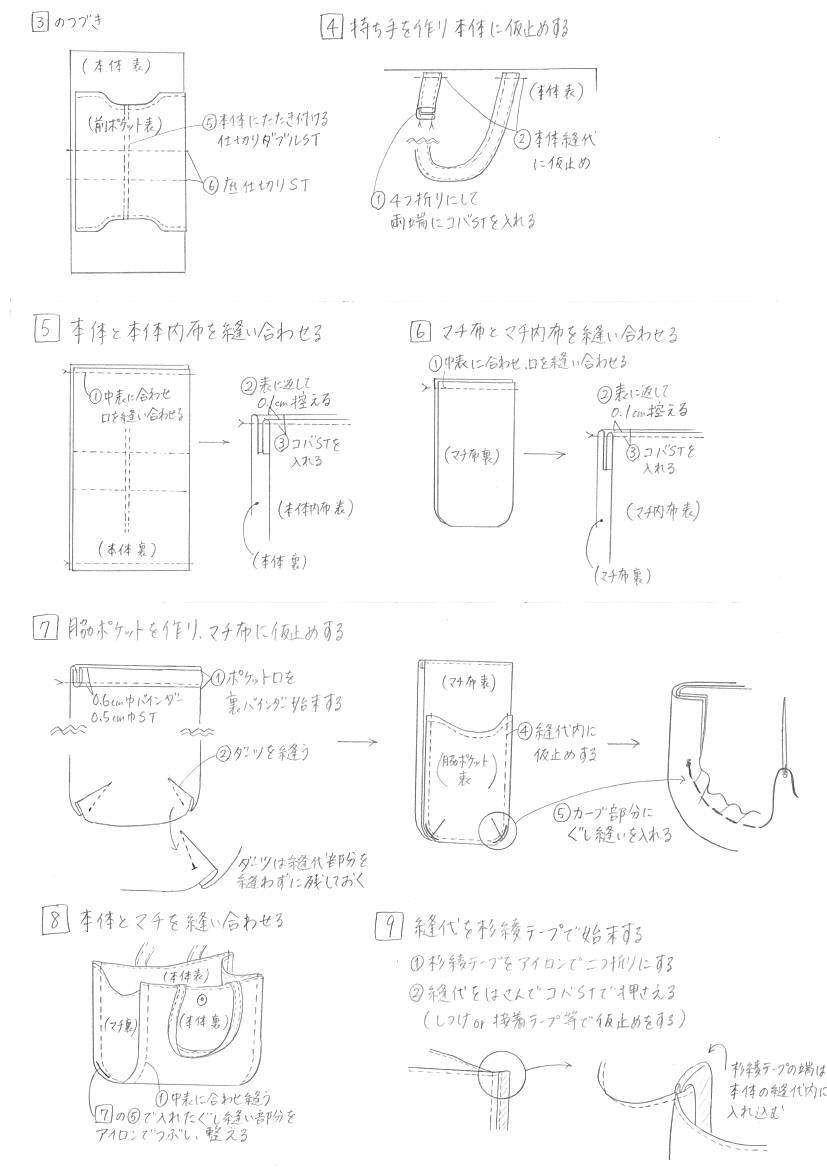 3 のつづき
(本体 表)
(前ポケット表)
⑤本体にたたき付ける
仕切りダブルST
⑥底仕切りST
4 持ち手を作り本体に仮止めする
(本体表)
②本体縫代
に仮止め
①4つ折りにして
両端にコバSTを入れる
5 本体と本体内布を縫い合わせる
①中表に合わせ
口を縫い合わせる
(本体 裏)
②表に返して
0.1cm控える
③コバSTを
入れる
(本体内布表)
(本体 裏)
6 マチ布とマチ内布を縫い合わせる
①中表に合わせ、口を縫い合わせる
(マチ布裏)
②表に返して
0.1cm控える
③コバSTを
入れる
(マチ内布表)
(マチ布裏)
7 脇ポケットを作り、マチ布に仮止めする
0.6cm巾バインダー
0.5cm巾ST
①ポケット口を
裏バインダー始末する
②ダーツを縫う
ダーツは縫代部分を
縫わずに残しておく
(マチ布表)
(脇ポケット
表)
④縫代内に
仮止めする
⑤カーブ部分に
ぐし縫いを入れる
8 本体とマチを縫い合わせる
(本体表)
(マチ裏)
(本体裏)
①中表に合わせ縫う
7の⑤で入れたぐし縫い部分を
アイロンでつぶし、整える
9 縫代を杉綾テープで始末する
①杉綾テープをアイロンで二つ折りにする
②縫代をはさんでコバSTで押さえる
(しつけor接着テープ等で仮止めをする)
杉綾テープの端は
本体の縫代内に
入れ込む